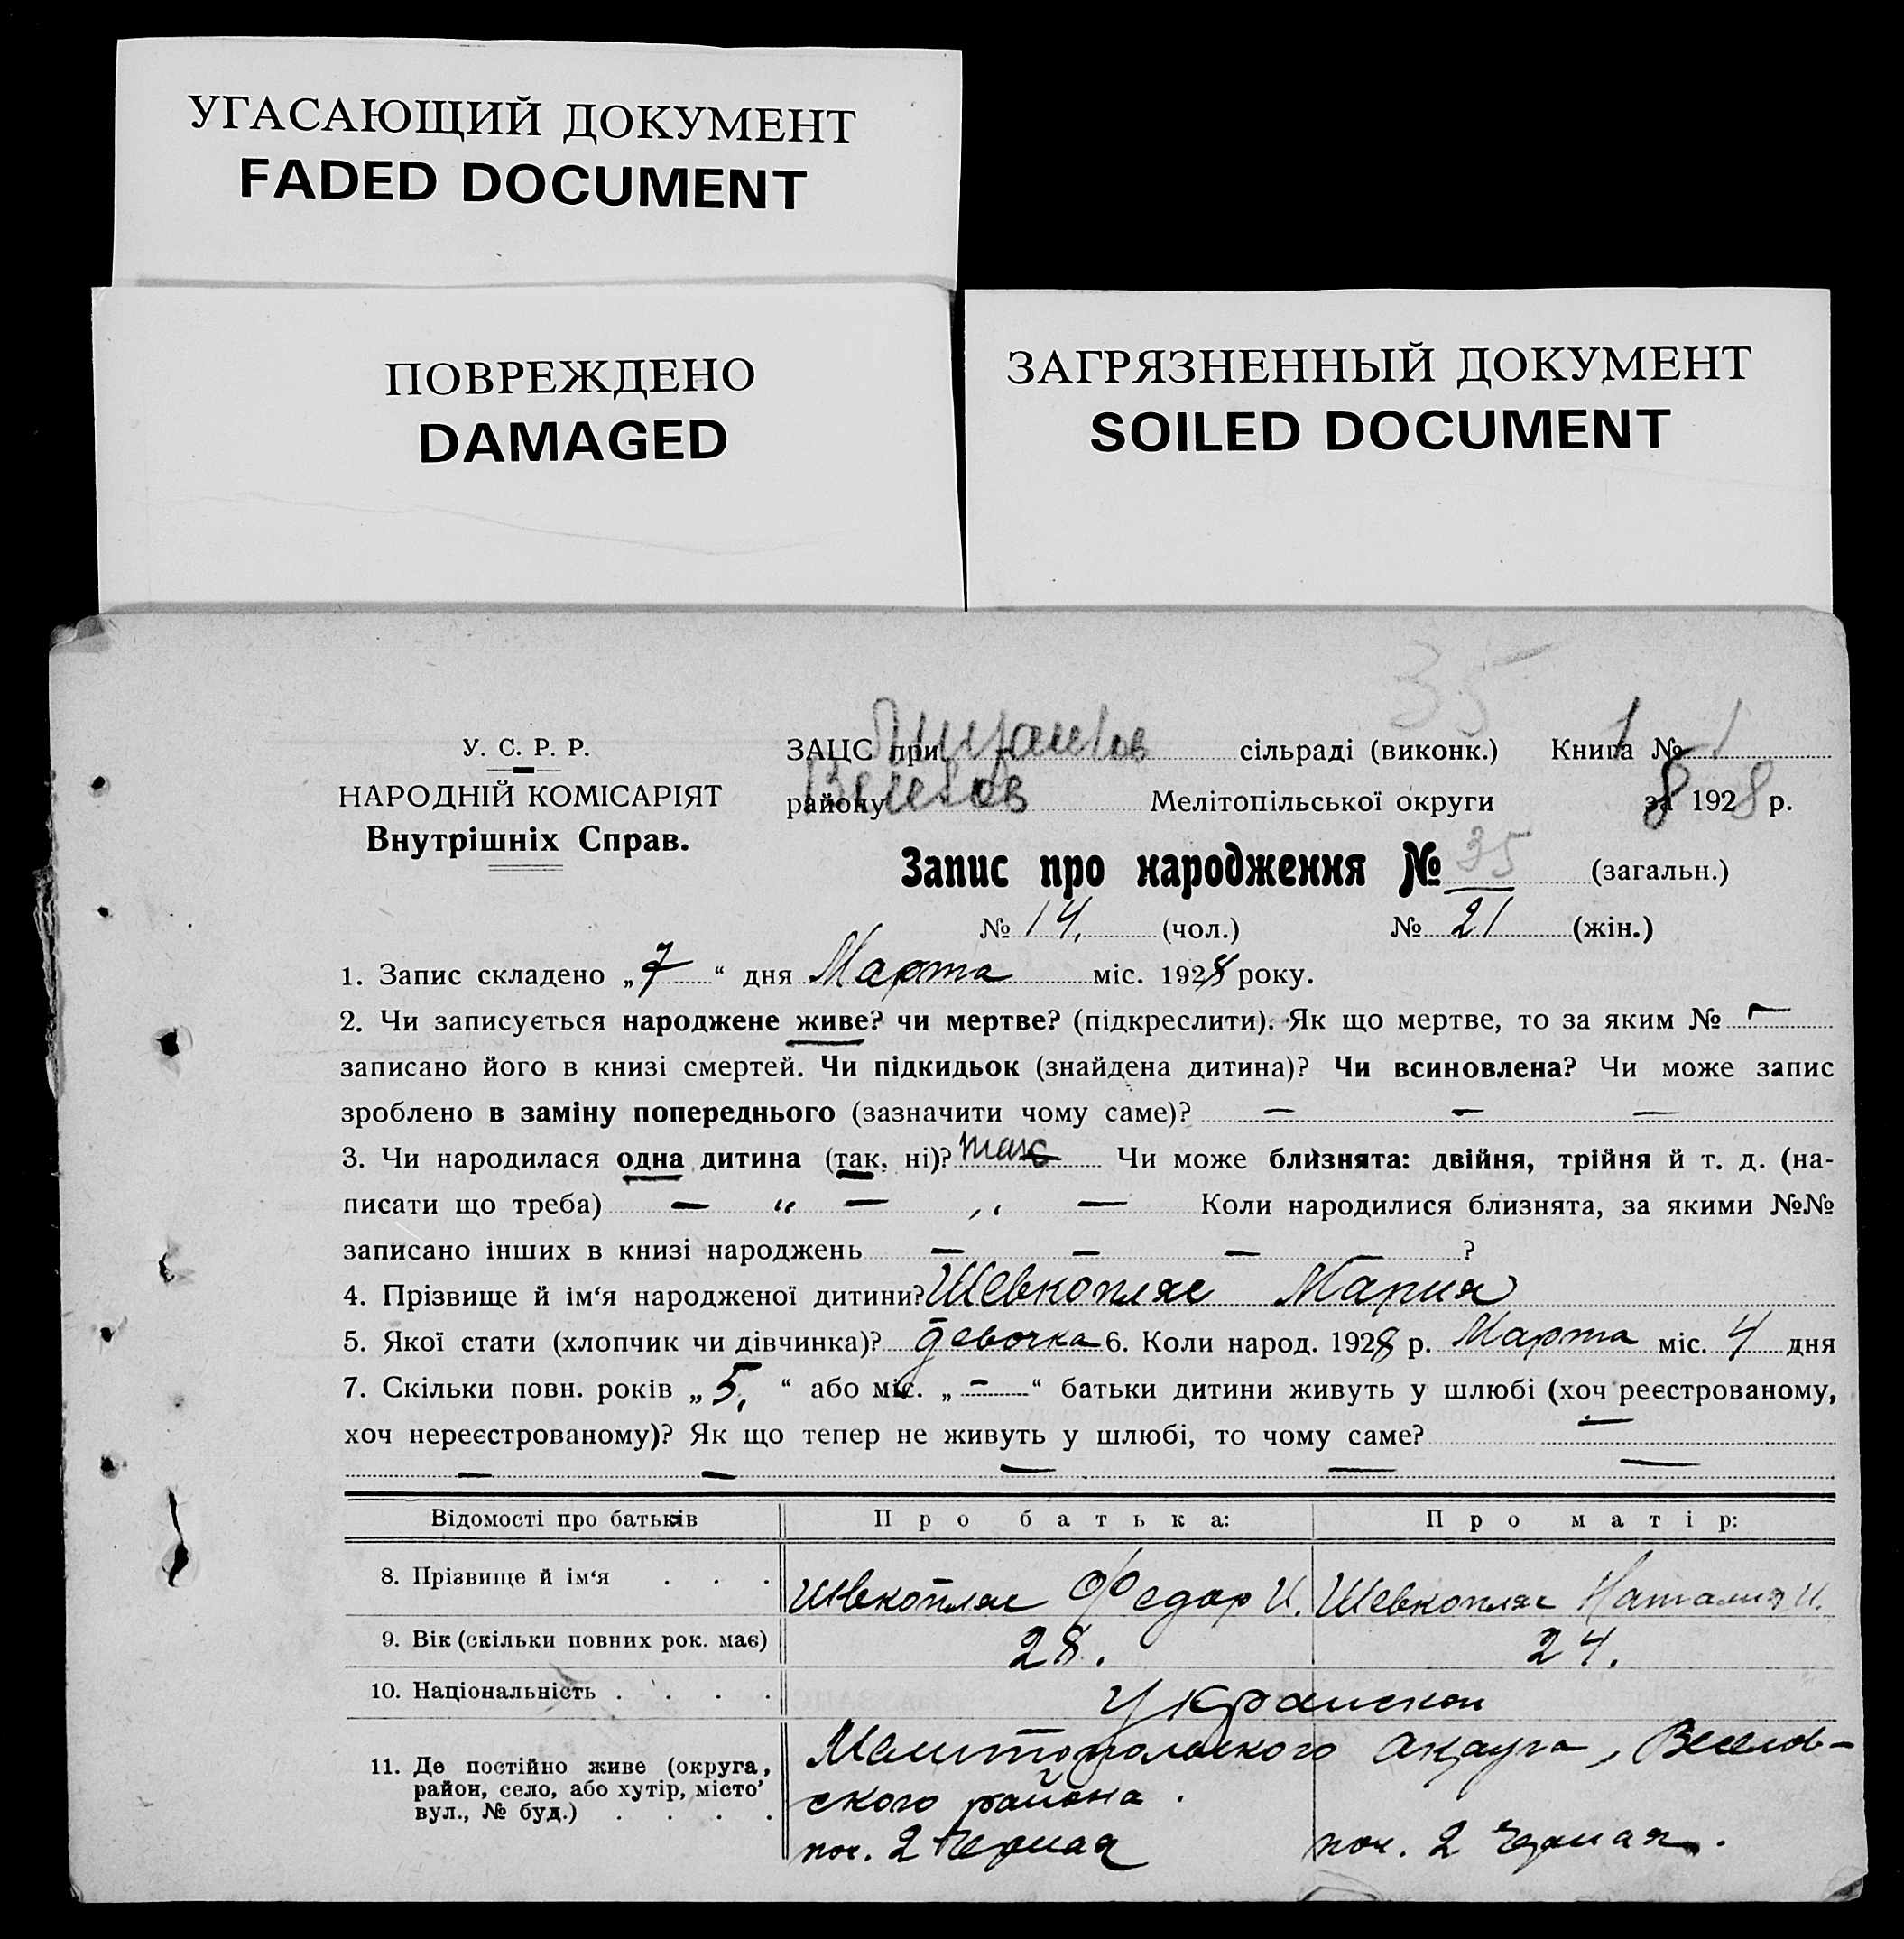 УГАСАЮЩИЙ ДОКУМЕНТ
FADED DOCUMENT
ПОВРЕЖДЕНО
DAMAGED
ЗАГРЯЗНЕННЫЙ ДОКУМЕНТ
SOILED DOCUMENT
35
У. С. Р. Р.
НАРОДНІЙ КОМІСАРІЯТ
Внутрішніх Справ.
ЗАЦС при сільраді (виконк.) Книга № 1
району Веселов Мелітопільської округи за 1928 р.
Запис про народження № 35 (загальн.)
№ 14. (чол.) № 21 (жін.)
1. Запис складено „7“ дня Марта міс. 1928 року.
2. Чи записується народжене живе? чи мертве? (підкреслити). Як що мертве, то за яким № —
записано його в книзі смертей. Чи підкидьок (знайдена дитина)? Чи всиновлена? Чи може запис
зроблено в заміну попереднього (зазначити чому саме)? — — —
3. Чи народилася одна дитина (так, ні)? так Чи може близнята: двійня, трійня й т. д. (на-
писати що треба) — „ — „ — Коли народилися близнята, за якими №№
записано інших в книзі народжень — — — ?
4. Прізвище й ім‘я народженої дитини? Шевкопляс Мария
5. Якої стати (хлопчик чи дівчинка)? девочка 6. Коли народ. 1928 р. Марта міс. 4 дня
7. Скільки повн. років „5.“ або міс. „—“ батьки дитини живуть у шлюбі (хоч реєстрованому,
хоч нереєстрованому)? Як що тепер не живуть у шлюбі, то чому саме? —
— — — — —
Відомості про батьків Про батька: Про матір:
8. Прізвище й ім‘я . . . Шевкопляс Федор И. Шевкопляс Наталия И.
9. Вік (скільки повних рок. має) 28. 24.
10. Національність . . . . Украинской
11. Де постійно живе (округа,
район, село, або хутір, місто’
вул., № буд.) . . . .
Мелитопольского округа, Веселов-
ского района.
пос. 2 Черная пос. 2 Черная.